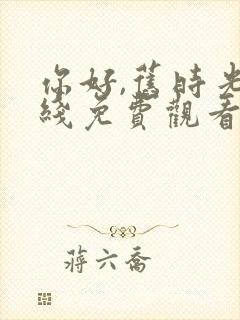 你好,舊時光
綫免費觀看
蔣六喬